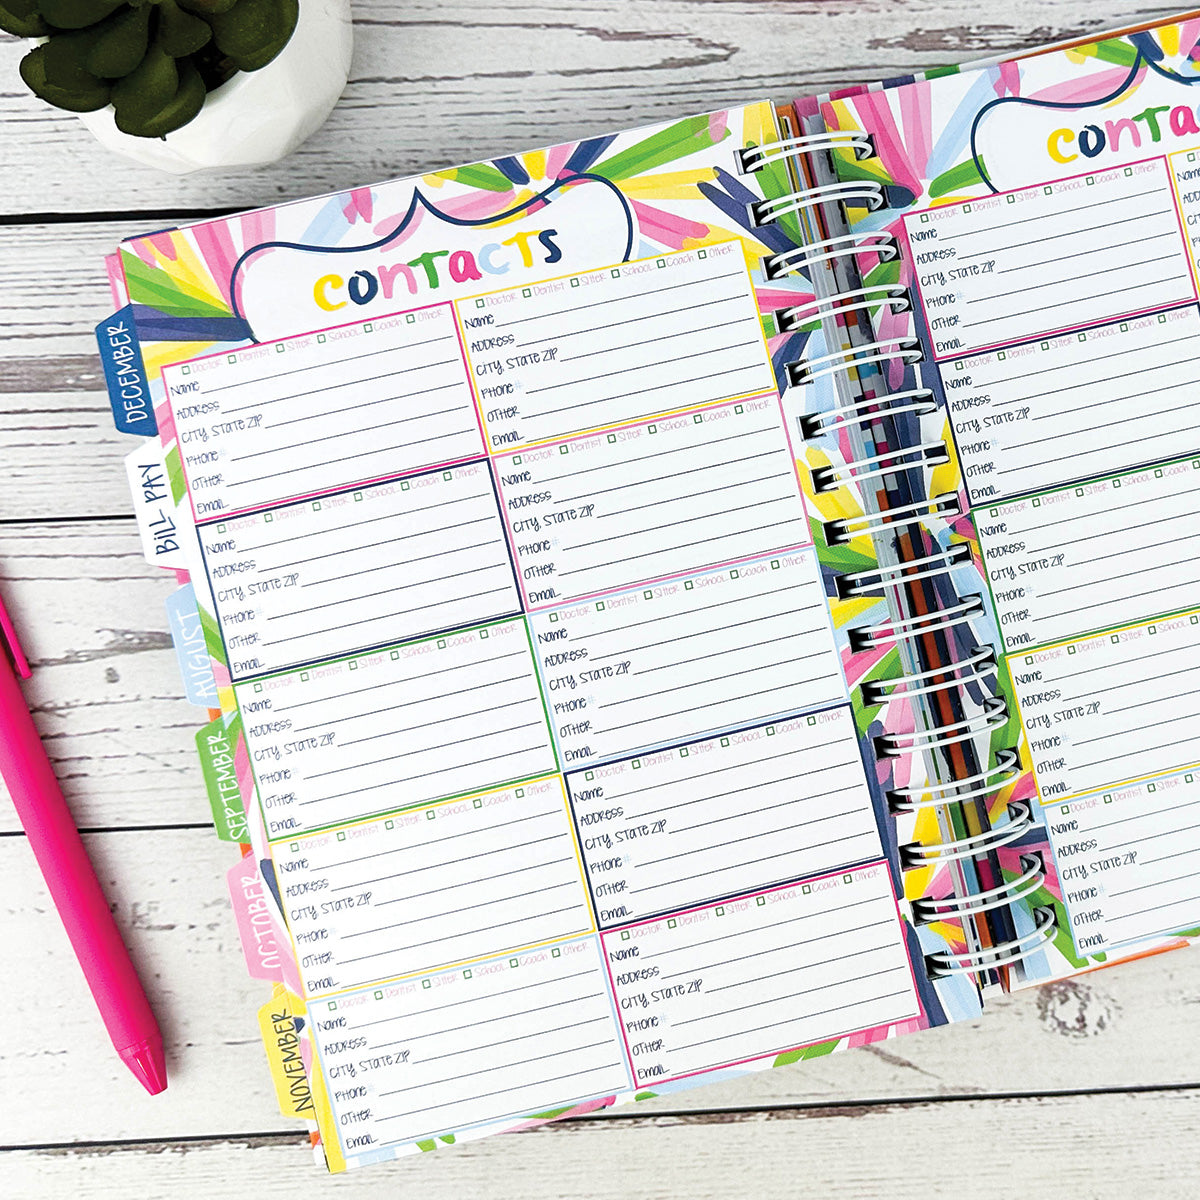 DECEMBER
BILL PAY
AUGUST
SEPTEMBER
OCTOBER
NOVEMBER
contacts
Doctor Dentist Sitter School Coach Other
Name
Address
City, State Zip
Phone#
Other
Email
Doctor Dentist Sitter School Coach Other
Name
Address
City, State Zip
Phone#
Other
Email
Doctor Dentist Sitter School Coach Other
Name
Address
City, State Zip
Phone#
Other
Email
Doctor Dentist Sitter School Coach Other
Name
Address
City, State Zip
Phone#
Other
Email
Doctor Dentist Sitter School Coach Other
Name
Address
City, State Zip
Phone#
Other
Email
Doctor Dentist Sitter School Coach Other
Name
Address
City, State Zip
Phone#
Other
Email
Doctor Dentist Sitter School Coach Other
Name
Address
City, State Zip
Phone#
Other
Email
Doctor Dentist Sitter School Coach Other
Name
Address
City, State Zip
Phone#
Other
Email
Doctor Dentist Sitter School Coach Other
Name
Address
City, State Zip
Phone#
Other
Email
Doctor Dentist Sitter School Coach Other
Name
Address
City, State Zip
Phone#
Other
Email
conta
Doctor Dentist Sitter School Coach Other
Name
Address
City, State Zip
Phone#
Other
Email
Doctor Dentist Sitter School Coach Other
Name
Address
City, State Zip
Phone#
Other
Email
Doctor Dentist Sitter School Coach
Name
Address
City, State Zip
Phone#
Other
Email
Doctor Dentist Sitter School
Name
Address
City, State Zip
Phone#
Other
Email
Doctor Dentist Sitter
Name
Address
City, State Zip
Phone#
Other
Email